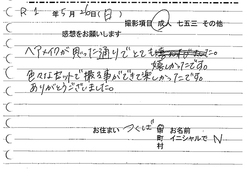 R 1 年 5 月 26 日(日)
撮影項目 成人 七五三 その他
感想をお願いします
ヘアメイクが思った通りでとても
嬉しかったです。
色々なセットで撮る事ができて楽しかったです。
ありがとうございました。
お住まい つくば 市 町 村 お名前 イニシャルで N